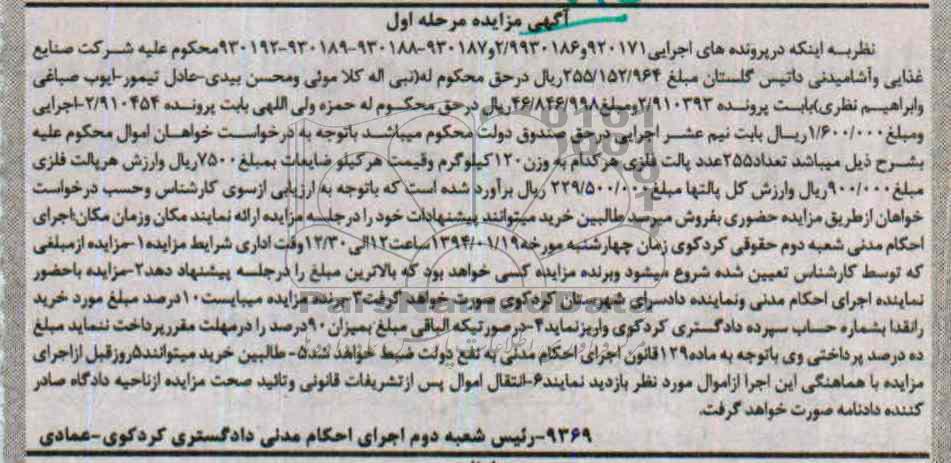 آگهی مزایده مرحله اول
نظربه اینکه درپرونده های اجرایی۹۲۰۱۷۱و۲/۹۹۳۰۱۸۶و۹۳۰۱۸۷-۹۳۰۱۸۸-۹۳۰۱۸۹-۹۳۰۱۹۲محکوم علیه شرکت صنایع
غذایی وآشامیدنی داتیس گلستان مبلغ ۲۵۵/۱۵۲/۹۶۴ریال درحق محکوم له(نبی اله کلا موئی ومحسن بیدی-عادل تیمور-ایوب صباغی
وابراهیم نظری)بابت پرونده ۲/۹۱۰۳۹۳ومبلغ۴۶/۸۴۶/۹۹۸ریال درحق محکوم له حمزه ولی اللهی بابت پرونده ۲/۹۱۰۴۵۴-اجرایی
ومبلغ۱/۶۰۰/۰۰۰ریال بابت نیم عشر اجرایی درحق صندوق دولت محکوم میباشد باتوجه به درخواست خواهان اموال محکوم علیه
بشرح ذیل میباشد تعداد۲۵۵عدد پالت فلزی هرکدام به وزن۱۲۰کیلوگرم وقیمت هرکیلو ضایعات بمبلغ۷۵۰۰ریال وارزش هرپالت فلزی
مبلغ۹۰۰/۰۰۰ریال وارزش کل پالتها مبلغ۲۲۹/۵۰۰/۰۰۰ ریال برآورد شده است که باتوجه به ارزیابی ازسوی کارشناس وحسب درخواست
خواهان ازطریق مزایده حضوری بفروش میرسد طالبین خرید میتوانند پیشنهادات خود را درجلسه مزایده ارائه نمایند مکان وزمان مکان:اجرای
احکام مدنی شعبه دوم حقوقی کردکوی زمان چهارشنبه مورخه۱۳۹۴/۰۱/۱۹ساعت۱۲الی۱۲/۳۰وقت اداری شرایط مزایده ۱-مزایده ازمبلغی
که توسط کارشناس تعیین شده شروع میشود وبرنده مزایده کسی خواهد بود که بالاترین مبلغ را درجلسه پیشنهاد دهد۲-مزایده باحضور
نماینده اجرای احکام مدنی ونماینده دادسرای شهرستان کردکوی صورت خواهد گرفت۳-برنده مزایده میبایست۱۰درصد مبلغ مورد خرید
رانقدا بشماره حساب سپرده دادگستری کردکوی واریزنماید۴-درصورتیکه الباقی مبلغ بمیزان۹۰درصد را درمهلت مقررپرداخت ننماید مبلغ
ده درصد پرداختی وی باتوجه به ماده۱۲۹قانون اجرای احکام مدنی به نفع دولت ضبط خواهد شد۵-طالبین خرید میتوانند۵روزقبل ازاجرای
مزایده با هماهنگی این اجرا ازاموال مورد نظر بازدید نمایند۶-انتقال اموال پس ازتشریفات قانونی وتائید صحت مزایده ازناحیه دادگاه صادر
کننده دادنامه صورت خواهد گرفت.
۹۳۶۹-رئیس شعبه دوم اجرای احکام مدنی دادگستری کردکوی-عمادی
ParsNamadData